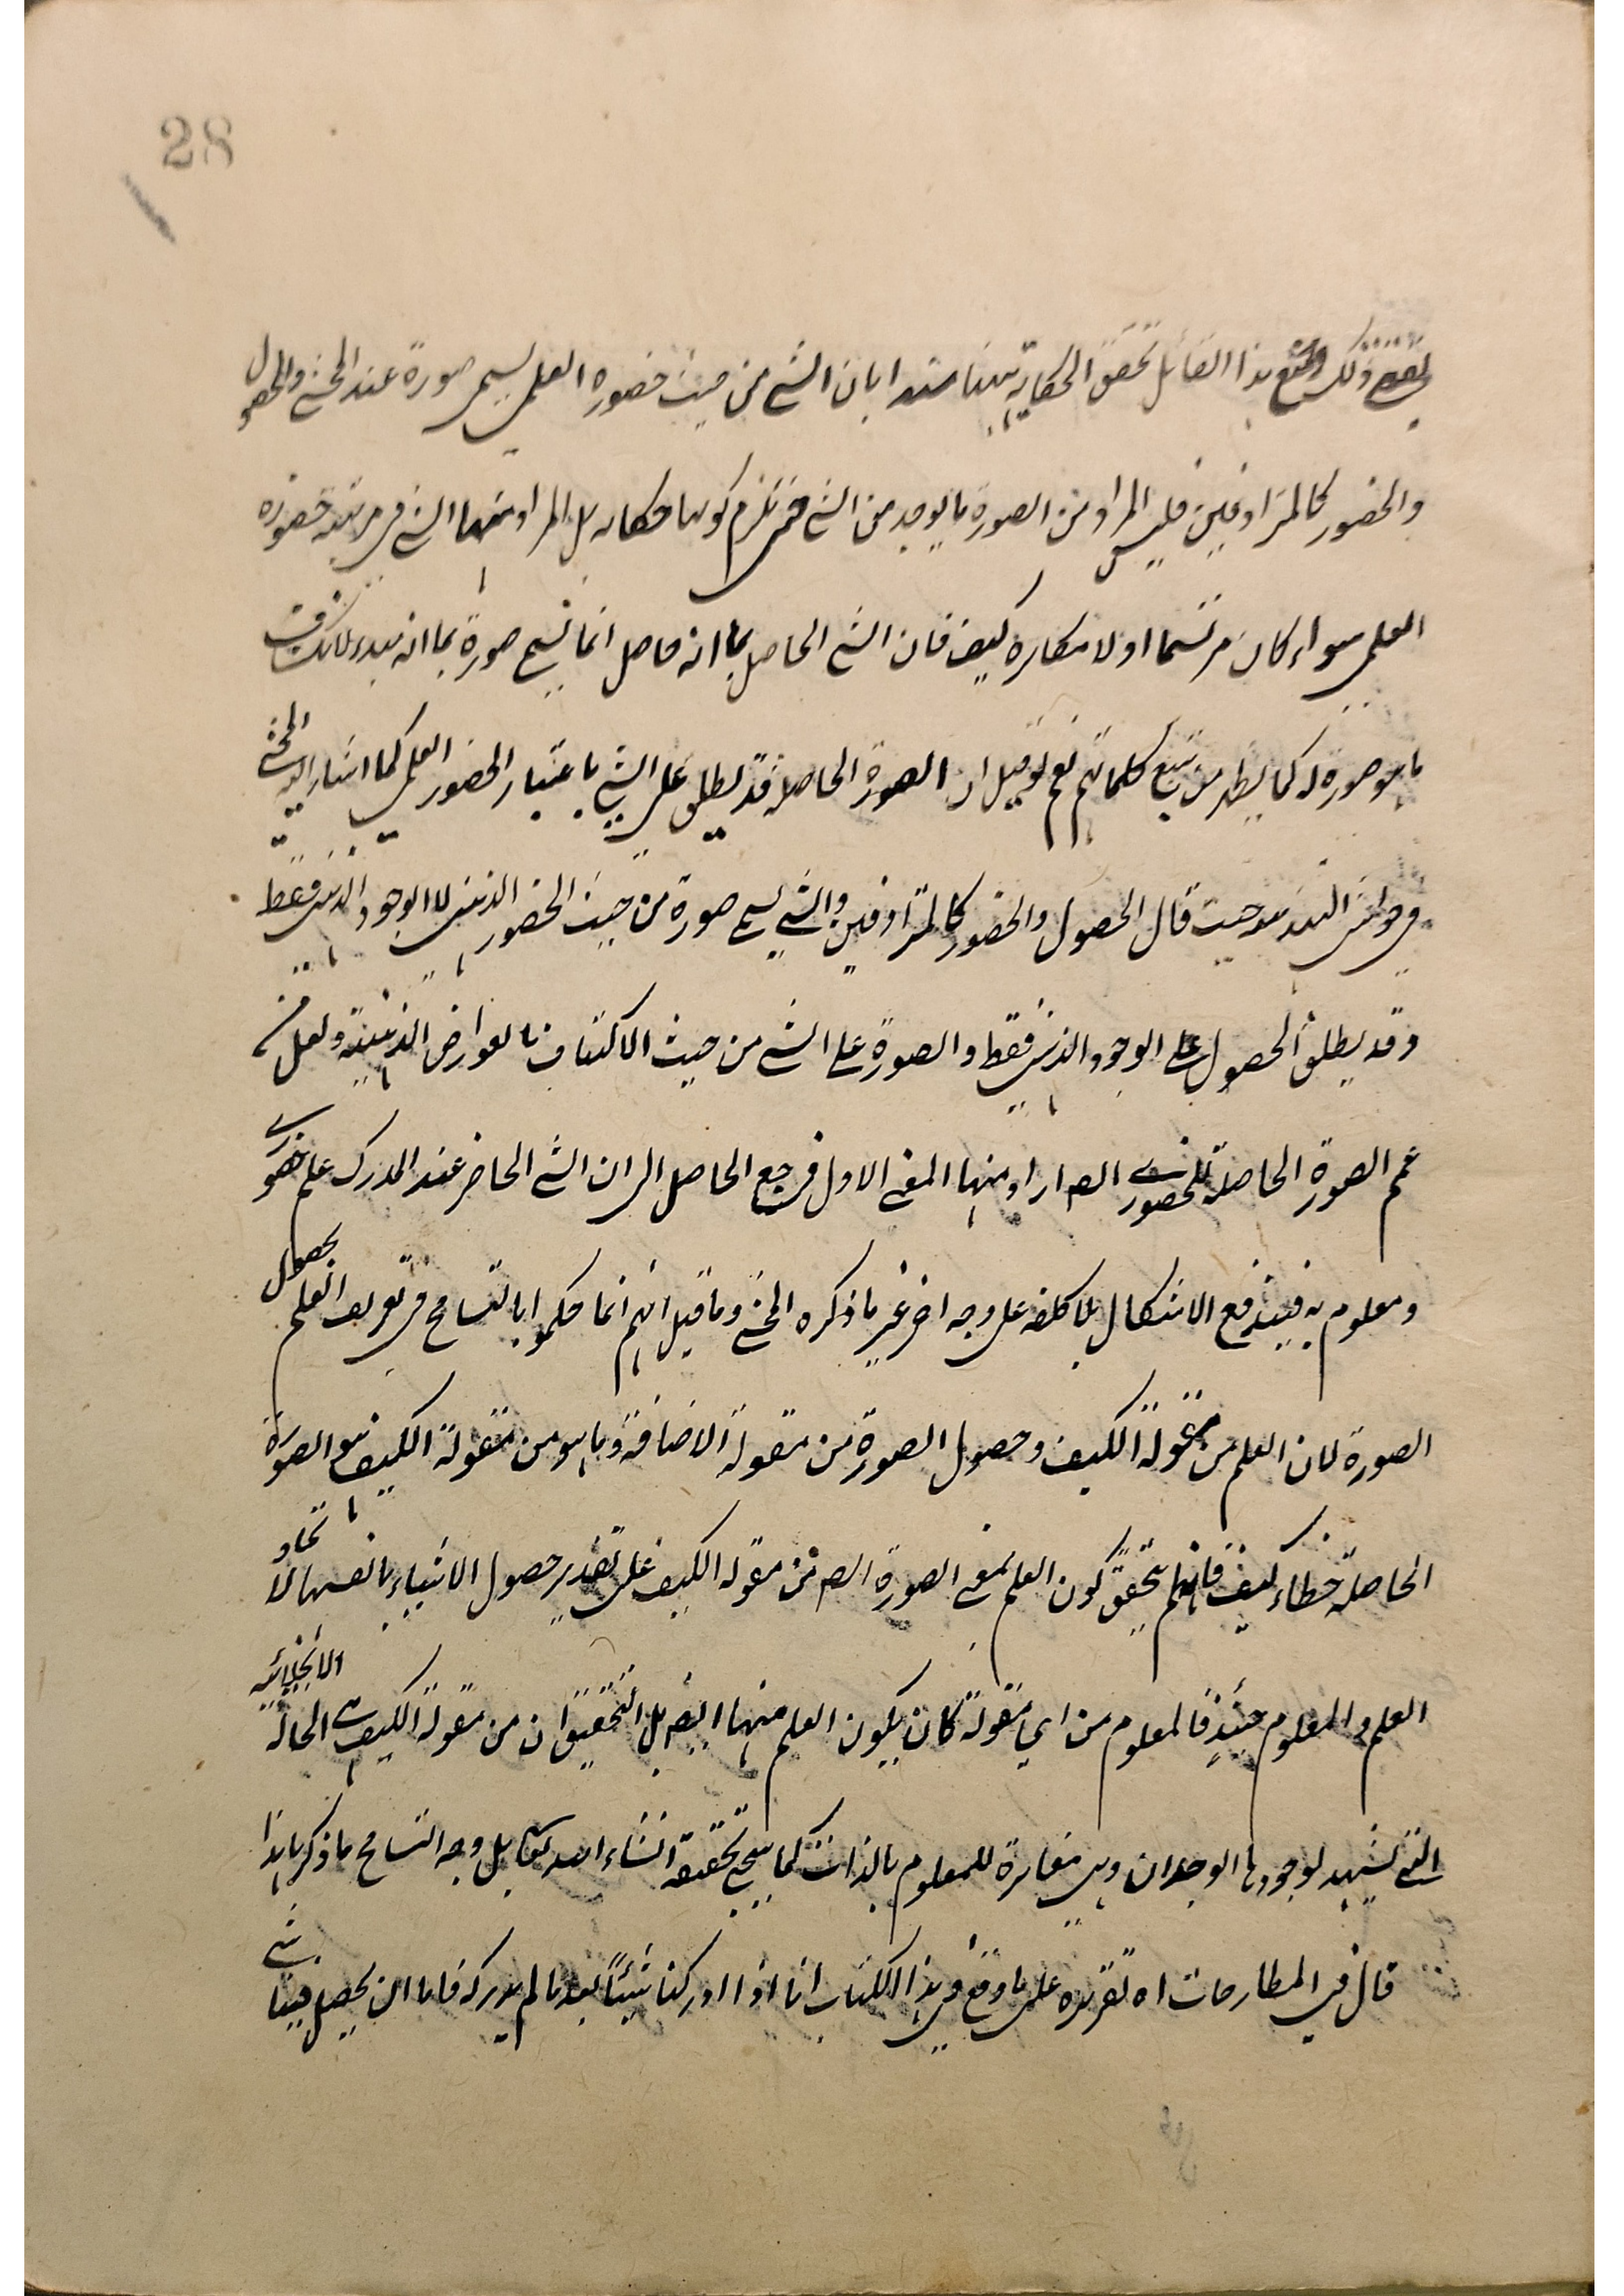 28
يقتضي ذلك ومنع هذا القائل تحقق الحكاية ههنا مستندا بان الشئ من حيث حضوره العلمي يسمى صورة عند المحشي والحصول
والحضور كالمترادفين فليس المراد من الصورة ما يوجد من الشئ حتى يلزم كونها حكاية بل المراد منها الشئ في مرتبة حضوره
العلمي سواء كان مرتسما او لا مكابرة كيف فان الشئ الحاصل بما انه حاصل انما يسمى صورة بما انه مبدء لانكشاف
ما هو صورة له كما يظهر من تتبع كلماتهم نعم لو قيل ان الصورة الحاصلة قد يطلق على الشئ باعتبار الحضور العلمي كما اشار اليه المحشي
في حواشي التهذيب حيث قال الحصول والحضور كالمترادفين والشئ يسمى صورة من حيث الحضور الذهني لا الوجود الذهني فقط
وقد يطلق الحصول على الوجود الذهني فقط والصورة على الشئ من حيث الاكتناف بالعوارض الذهنية ولعل من
عمم الصورة الحاصلة للحضوري الصـ اراد منها المعنى الاول فرجع الحاصل الى ان الشئ الحاضر عند المدرك علم حضوري
ومعلوم به فيندفع الاشكال بلا كلفة على وجه اخر غير ما ذكره المحشي وما قيل انهم انما حكموا بالتسامح في تعريف العلم بحصول
الصورة لان العلم من مقولة الكيف وحصول الصورة من مقولة الاضافة وما هو من مقولة الكيف هو الصورة
الحاصلة خطاء كيف فانه لم يتحقق كون العلم بمعنى الصورة الصـ من مقولة الكيف على تقدير حصول الاشياء بانفسها لاتحاد
العلم والمعلوم حينئذ فالمعلوم من اي مقولة كان يكون العلم منها ايضا بل التحقيق ان من مقولة الكيف هي الحالة الانجلائية
التي يشهد بوجودها الوجدان وهي مغايرة للمعلوم بالذات كما سيجئ تحقيقه انشاء الله تعالى بل وجه التسامح ما ذكرنا هذا
قال في المطارحات اه تقريره على ما وقع في هذا الكتاب انا اذا ادركنا شيئا بعد ما لم ندركه فاما ان يحصل فينا شئ